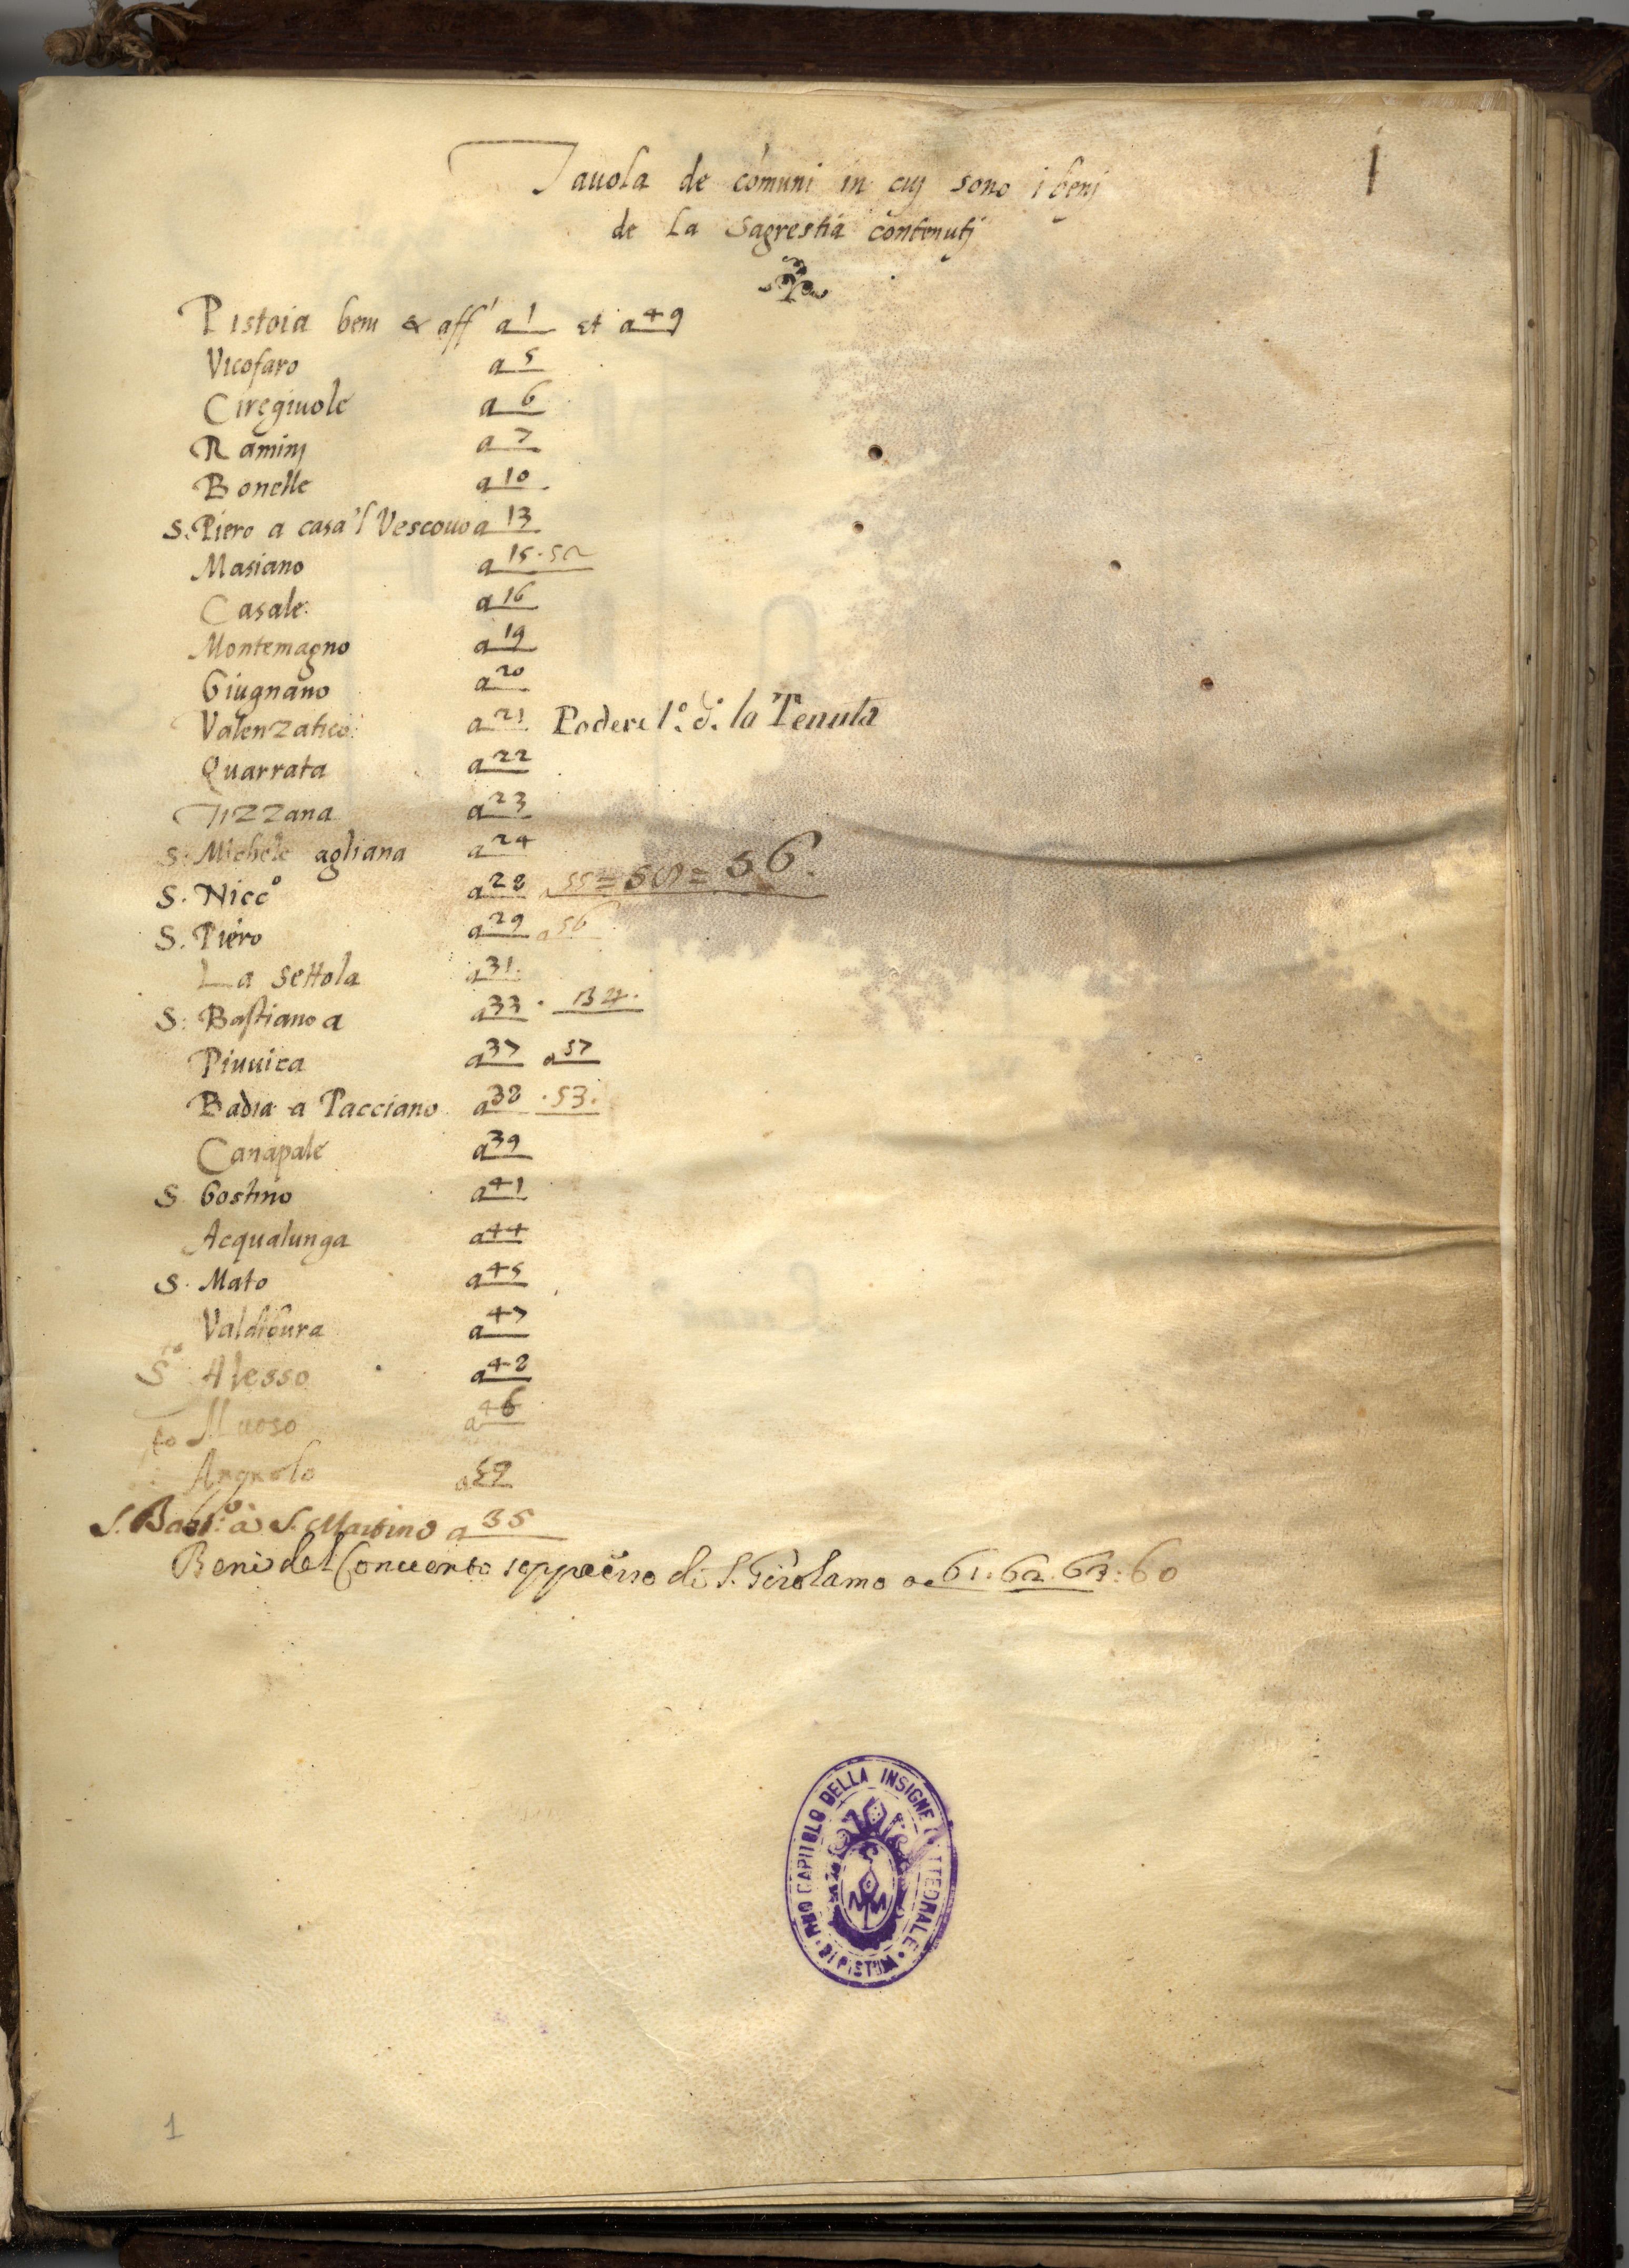 1
Tauola de comuni in cuj sono i benj
de La Sagrestia contenutj
Pistoia beni & aff' a 1 et a 49
Vicofaro a 5
Ciregiuole a 6
Raminj a 7
Bonelle a 10
S. Piero a casa'l Vescouo a 13
Masiano a 15 · 52
Casale a 16
Montemagno a 19
Giugnano a 20
Valenzatico a 21 Podere 1.º d. la Tenuta
Quarrata a 22
Tizzana a 23
S. Michele agliana a 24
S. Nicc.º a 28 a 55 = = 56.
S. Piero a 29 a 56
La Settola a 31
S: Bastiano a a 33 · 34.
Piuuica a 37 a 57
Badia a Pacciano a 38 · 53.
Canapale a 39
S. Gostino a 41
Acqualunga a 44
S. Mato a 45
Valdibura a 47
S.to Alesso a 48
Muoso a 46
to
Angnolo a 59
S. Bast.º à S. Martino a 35
Beni del Conuento soppresso di S. Girolamo a 61. 62. 63: 60
CAPITOLO DELLA INSIGNE CATTEDRALE · DI PISTOIA
1